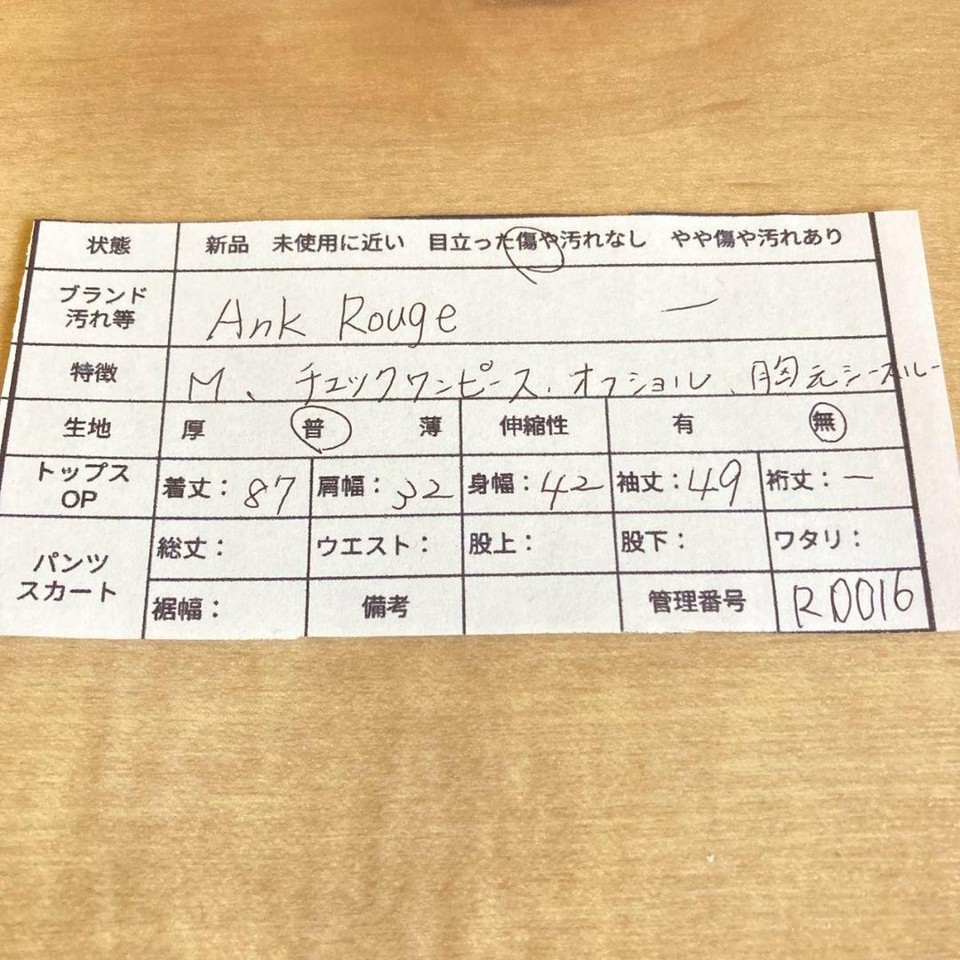 状態 新品 未使用に近い 目立った傷や汚れなし やや傷や汚れあり
ブランド
汚れ等 Ank Rouge ー
特徴 M、チェックワンピース、オフショル、胸元シースルー
生地 厚 普 薄 伸縮性 有 無
トップス
OP 着丈：87 肩幅：32 身幅：42 袖丈：49 裄丈：ー
パンツ
スカート 総丈： ウエスト： 股上： 股下： ワタリ：
裾幅： 備考 管理番号 R0016